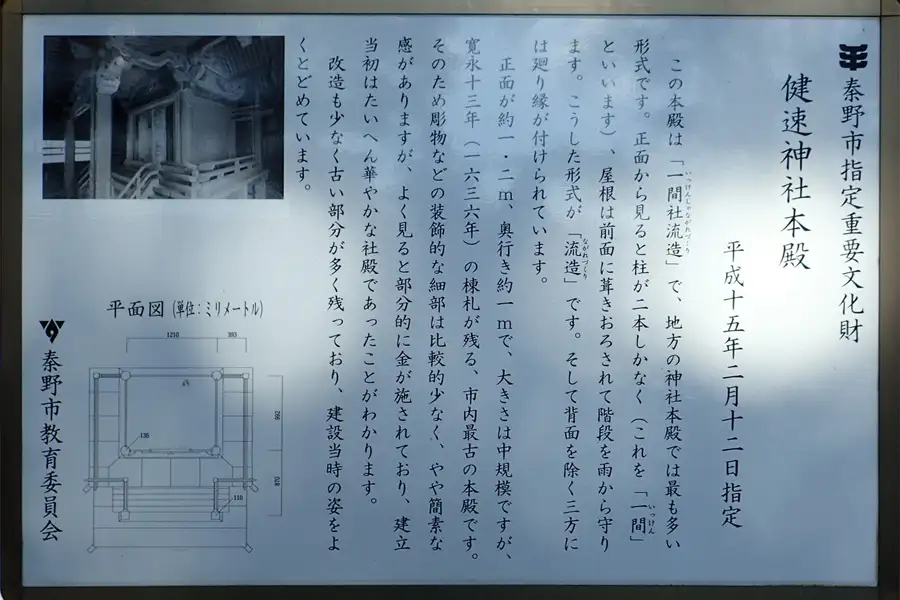 秦野市指定重要文化財
健速神社本殿
平成十五年二月十二日指定
この本殿は「一間社流造」で、地方の神社本殿では最も多い
いっけんしゃながれづくり
形式です。正面から見ると柱が二本しかなく（これを「一間」
いっけん
といいます）、屋根は前面に葺きおろされて階段を雨から守り
ます。こうした形式が「流造」です。そして背面を除く三方に
ながれづくり
は廻り縁が付けられています。
正面が約一・二ｍ、奥行き約一ｍで、大きさは中規模ですが、
寛永十三年（一六三六年）の棟札が残る、市内最古の本殿です。
そのため彫物などの装飾的な細部は比較的少なく、やや簡素な
感がありますが、よく見ると部分的に金が施されており、建立
当初はたいへん華やかな社殿であったことがわかります。
改造も少なく古い部分が多く残っており、建設当時の姿をよ
くとどめています。
平面図（単位：ミリメートル）
1210
393
136
110
秦野市教育委員会